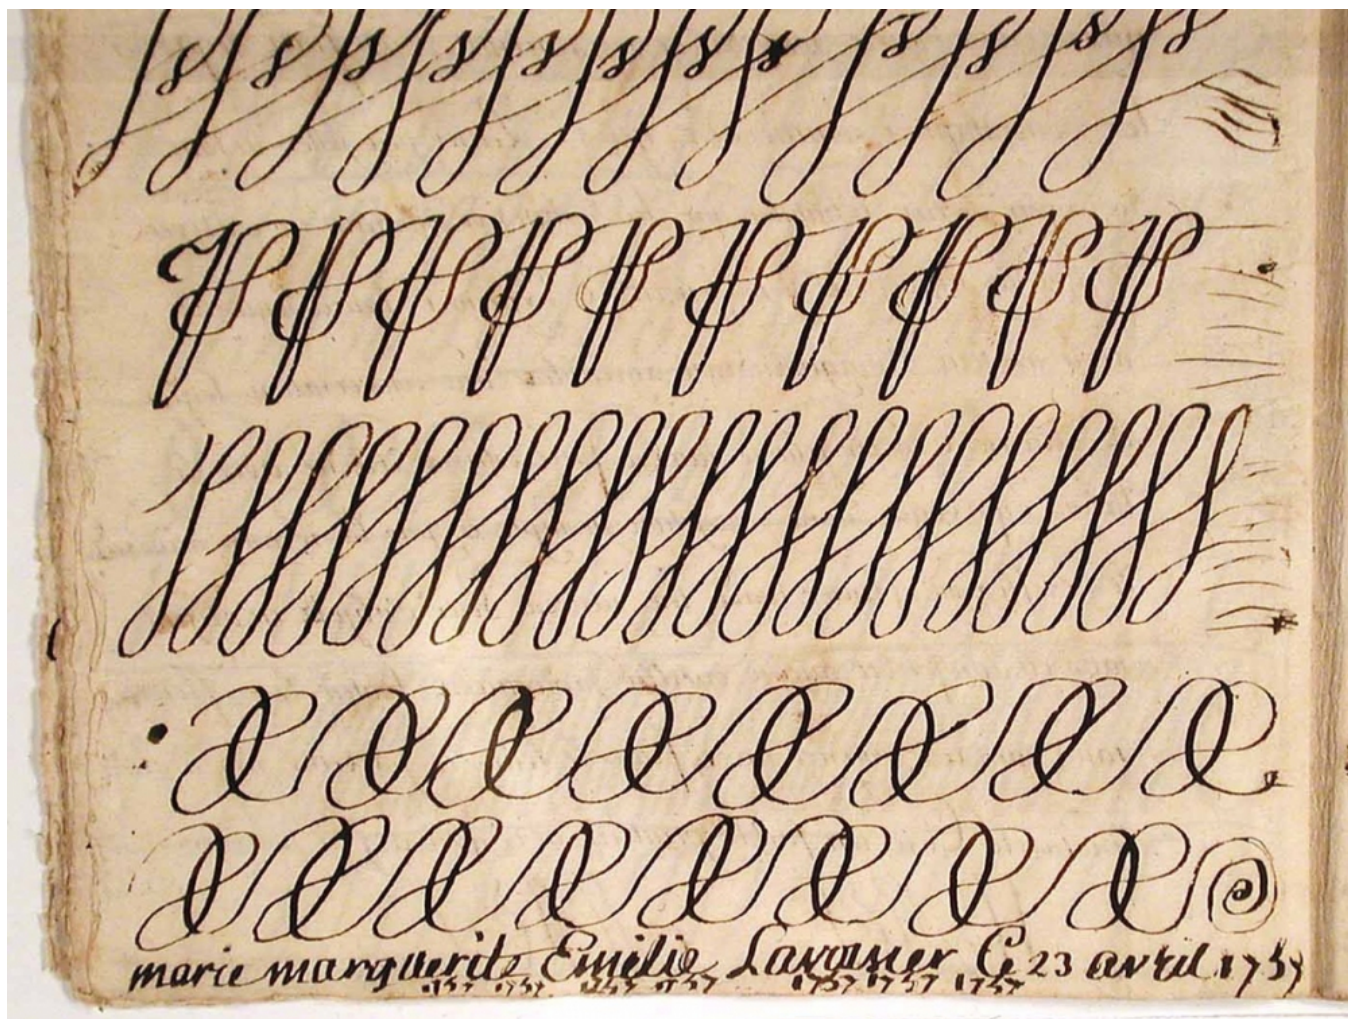 marie marguerite Emélie Lavasier C 23 avril 1757
1757 1757 1757 1757 1757 1757 1757